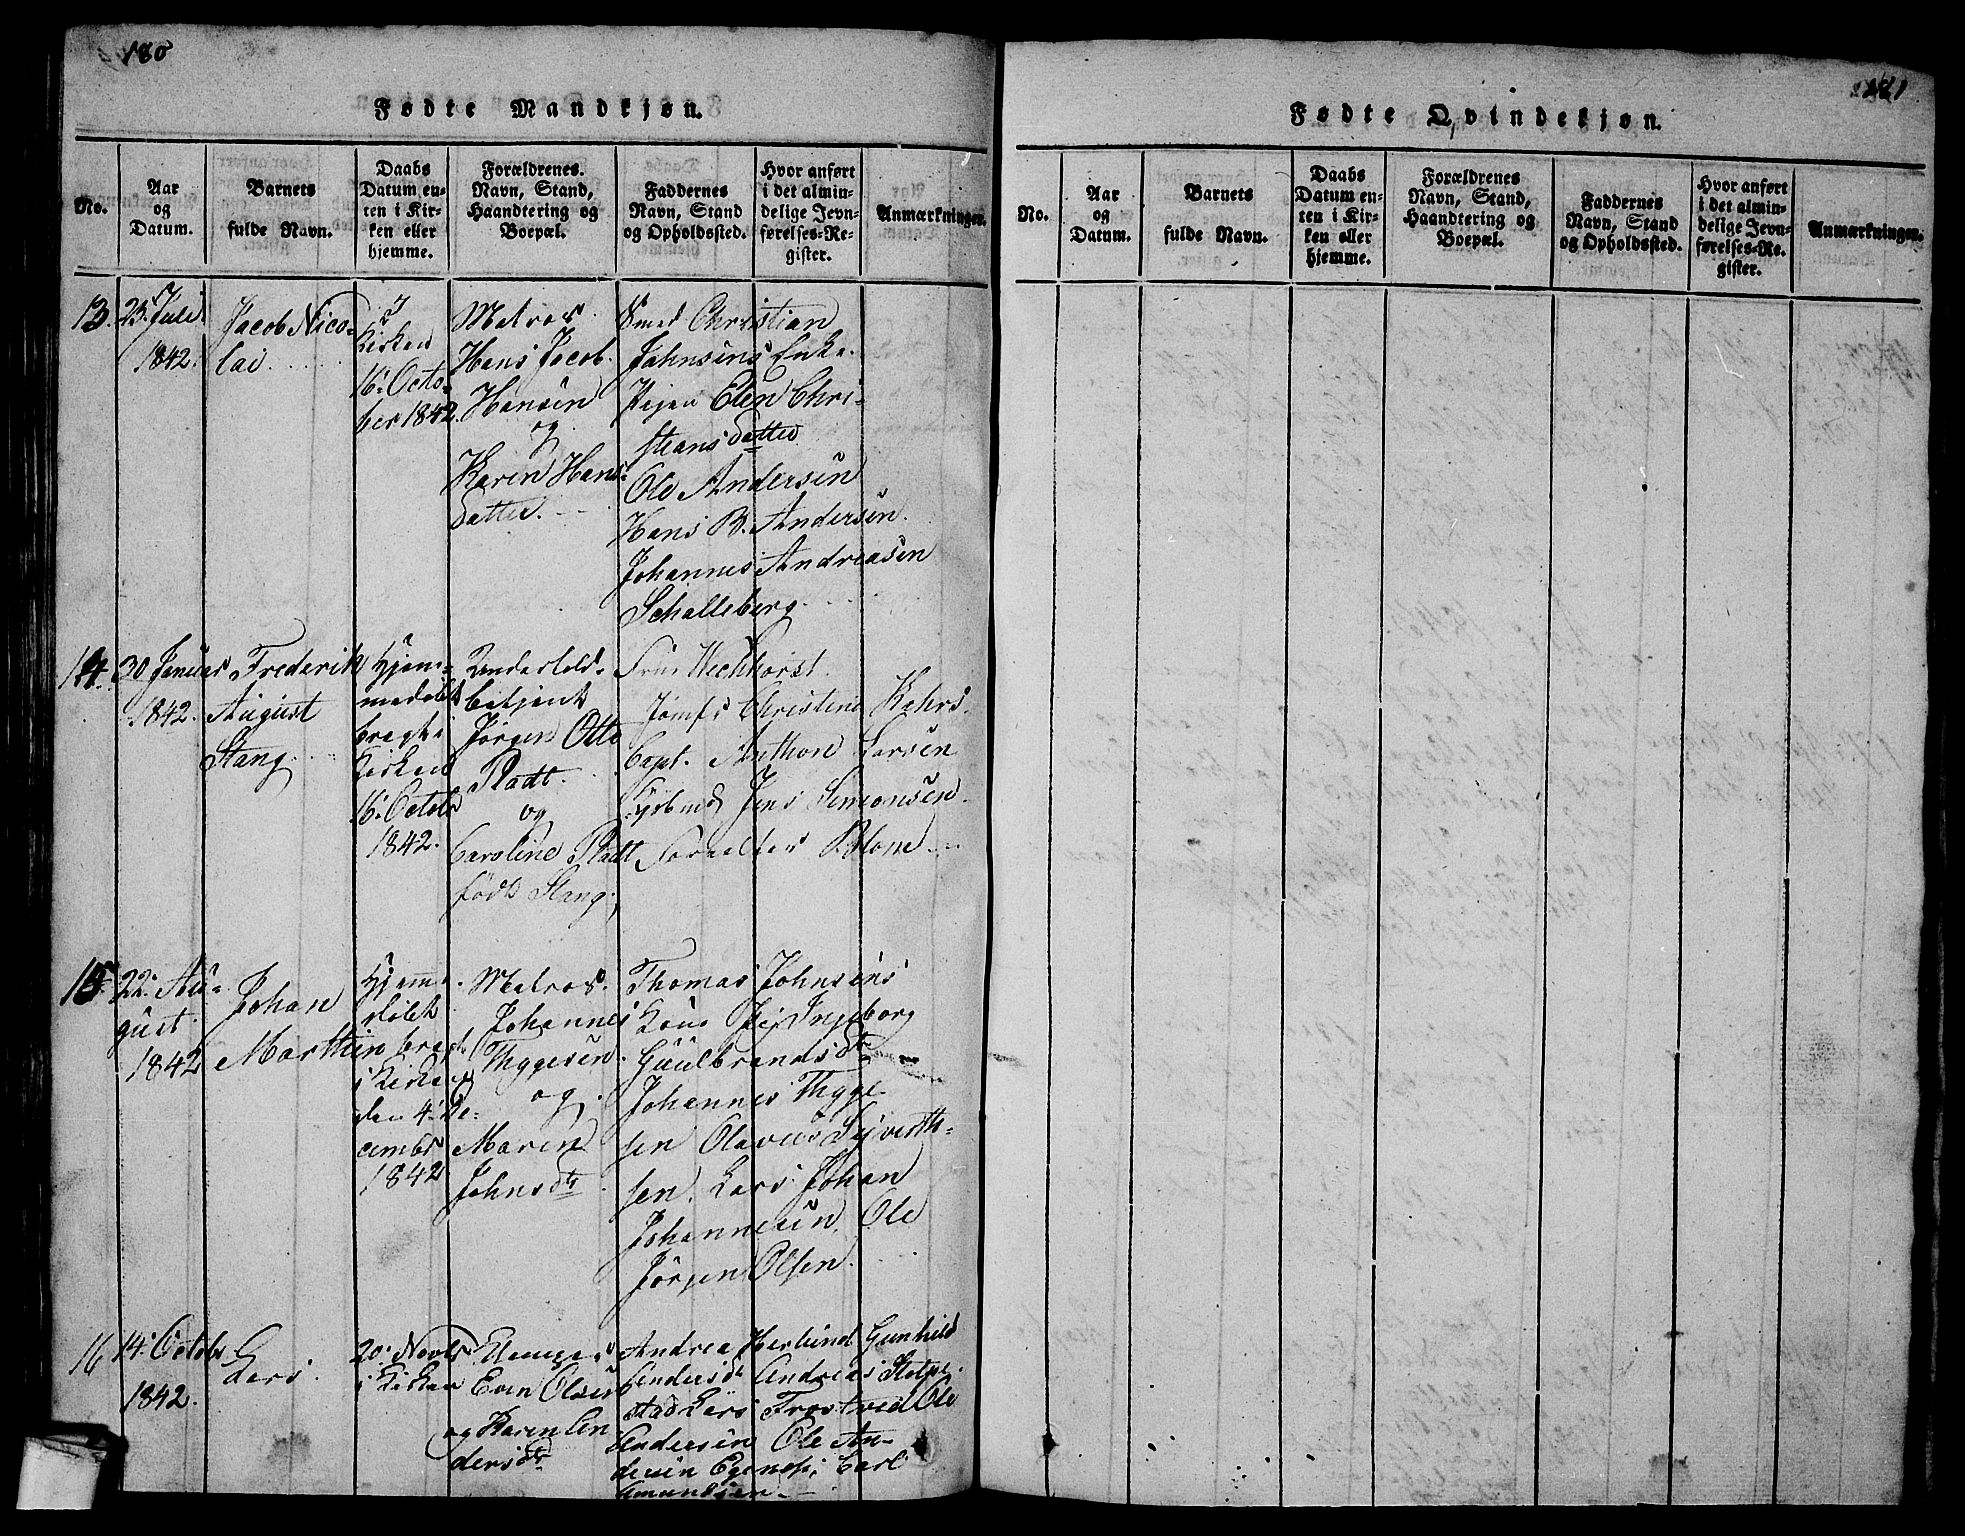 180
Fødte Mandkjøn.
No.
Aar
og
Datum.
Barnets
fulde Navn.
Daabs
Datum en-
ten i Kir-
ken eller
hjemme.
Forældrenes.
Navn, Stand,
Haandtering og
Boepæl.
Faddernes
Navn, Stand
og Opholdssted.
Hvor anført
i det almin-
delige Jevn-
førelses-Re-
gister.
Anmærkninger.
13.
23. Juli
1842.
Jacob Nico-
lai
i
Kirken
16. Octo-
ber 1842.
Matros
Hans Jacob
Hansen
og
Karen Hans-
datter.
Smed Christian
Jahnsens Enke.
Pigen Elen Chri-
stiansdatter
Ole Andersen
Hans B. Andersen.
Johannes Andreasen
Schalleberg.
14.
30 Januar
1842.
Frederik
August
Stang.
Hjem-
medøbt
bragt i
Kirken
16. Octobr
1842.
Underfold-
betjent
Jørgen Otto
Pladt.
og
Caroline Pladt
født Stang.
Fru Wechhorst.
Jomfr Christine Kahrs.
Capt. Anthon Larsen
Jens Simonsen.
Forvalter Blom
15.
22. Au-
gust.
1842
Johan
Marthin
Hjemme-
døbt
bragt
i Kirken
den 4. De-
cembr
1842
Matros.
Johannes
Thygesen.
og
Maren
Johnsdtr
Thomas Johnsens
Kone Pig Ingeborg
Guulbrandsdtr
Johannes Thyge-
sen Olaves Syverth-
sen. Lars Johan
Johannesen. Ole
Jørgen Olsen.
16
14. Octobr
1842.
Lars.
20. Novbr
i Kirken
Even Olsen
og Karen An
dersdtr
Andrea Herlund Gunhild
Andersdr Andreas Stolpe-
stad Lars Trostvid Ole
Andersen Ole An-
dersen Egenæs, Carl
Amundsen
181
Fødte Qvindekjøn.
No.
Aar
og
Datum.
Barnets
fulde Navn.
Daabs
Datum en-
ten i Kir-
ken eller
hjemme.
Forældrenes
Navn, Stand,
Haandtering og
Boepæl.
Faddernes
Navn, Stand
og Opholdssted.
Hvor anført
i det almin-
delige Jevn-
førelses-Re-
gister.
Anmærkninger.